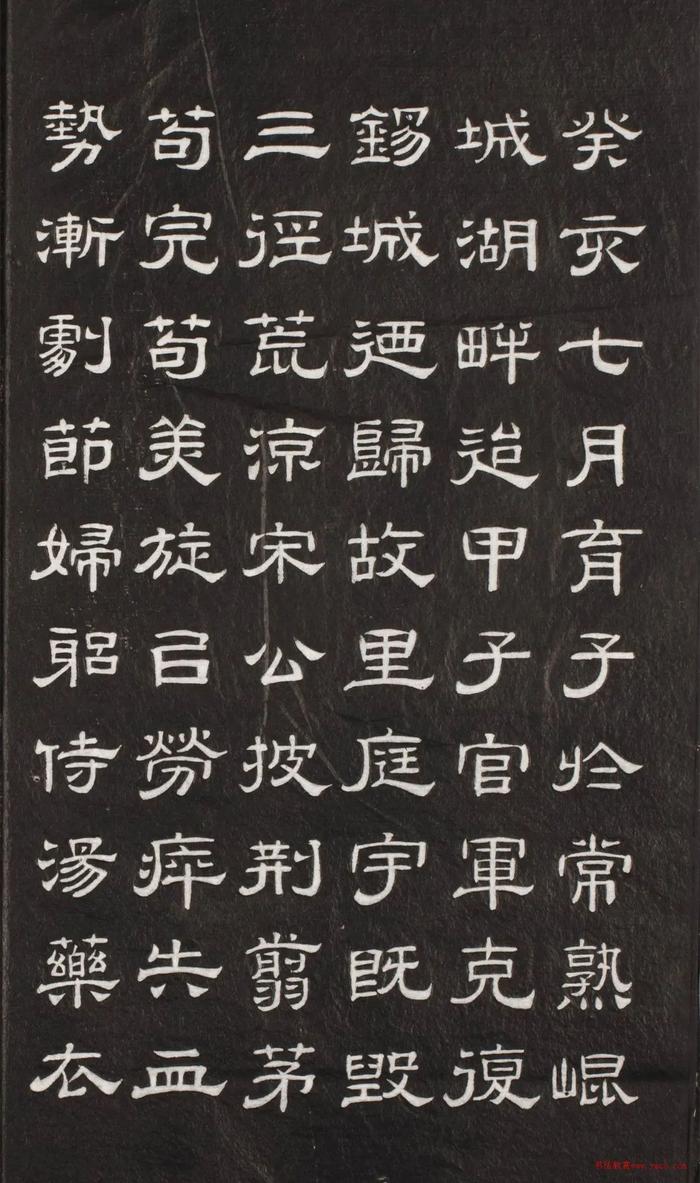 癸亥七月育子於常熟崐
城湖畔迨甲子官軍克復
錫城迺歸故里庭宇既毀
三徑荒涼宋公披荆翦茅
苟完苟美旋㠯勞瘁失血
勢漸劇節婦躬侍湯藥衣
书法教育www.yac8.com